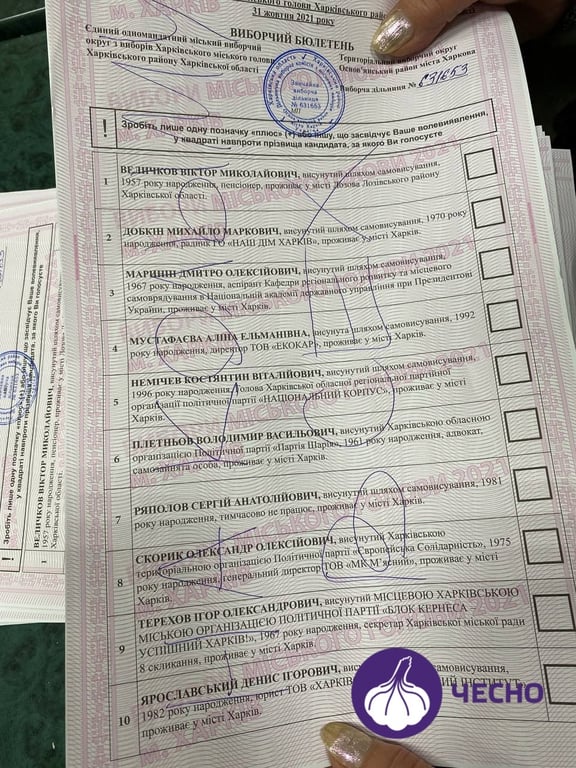 міського голови Харківського
31 жовтня 2021 року
ВИБОРЧИЙ БЮЛЕТЕНЬ
Єдиний одномандатний міський виборчий
округ з виборів Харківського міського голови
Харківського району Харківської області
Територіальний виборчий округ
Основ'янський район міста Харкова
Виборча дільниця № 631653
Звичайна
виборча
дільниця
№ 631653
! Зробіть лише одну позначку «плюс» (+) або іншу, що засвідчує Ваше волевиявлення,
у квадраті навпроти прізвища кандидата, за якого Ви голосуєте
1 ВЕЛИЧКОВ ВІКТОР МИКОЛАЙОВИЧ, висунутий шляхом самовисування,
1957 року народження, пенсіонер, проживає у місті Лозова Лозівського району
Харківської області.
2 ДОБКІН МИХАЙЛО МАРКОВИЧ, висунутий шляхом самовисування, 1970 року
народження, радник ГО «НАШ ДІМ ХАРКІВ», проживає у місті Харків.
3 МАРІНІН ДМИТРО ОЛЕКСІЙОВИЧ, висунутий шляхом самовисування,
1967 року народження, аспірант Кафедри регіонального розвитку та місцевого
самоврядування в Національній академії державного управління при Президентові
України, проживає у місті Харків.
4 МУСТАФАЄВА АЛІНА ЕЛЬМАНІВНА, висунута шляхом самовисування, 1992
року народження, директор ТОВ «ЕКОКАР», проживає у місті Харків.
5 НЕМІЧЕВ КОСТЯНТИН ВІТАЛІЙОВИЧ, висунутий шляхом самовисування,
1996 року народження, Голова Харківської обласної регіональної партійної
організації політичної партії «НАЦІОНАЛЬНИЙ КОРПУС», проживає у місті
Харків.
6 ПЛЕТНЬОВ ВОЛОДИМИР ВАСИЛЬОВИЧ, висунутий Харківською обласною
організацією Політичної партії «Партія Шарія», 1961 року народження, адвокат.
самозайнята особа, проживає у місті Харків.
7 РЯПОЛОВ СЕРГІЙ АНАТОЛІЙОВИЧ, висунутий шляхом самовисування, 1981
року народження, тимчасово не працює, проживає у місті Харків.
8 СКОРИК ОЛЕКСАНДР ОЛЕКСІЙОВИЧ, висунутий Харківською
територіальною організацією Політичної партії «Європейська Солідарність», 1975
року народження, генеральний директор ТОВ «МК М'ясний», проживає у місті
Харків.
9 ТЕРЕХОВ ІГОР ОЛЕКСАНДРОВИЧ, висунутий МІСЦЕВОЮ ХАРКІВСЬКОЮ
МІСЬКОЮ ОРГАНІЗАЦІЄЮ ПОЛІТИЧНОЇ ПАРТІЇ «БЛОК КЕРНЕСА –
УСПІШНИЙ ХАРКІВ!», 1967 року народження, секретар Харківської міської ради
8 скликання, проживає у місті Харків.
10 ЯРОСЛАВСЬКИЙ ДЕНИС ІГОРОВИЧ, висунутий шляхом самовисування,
1982 року народження, юрист ТОВ «ХАРКІВ ІНСТИТУТ
проживає у місті Харків.
ЧЕСНО